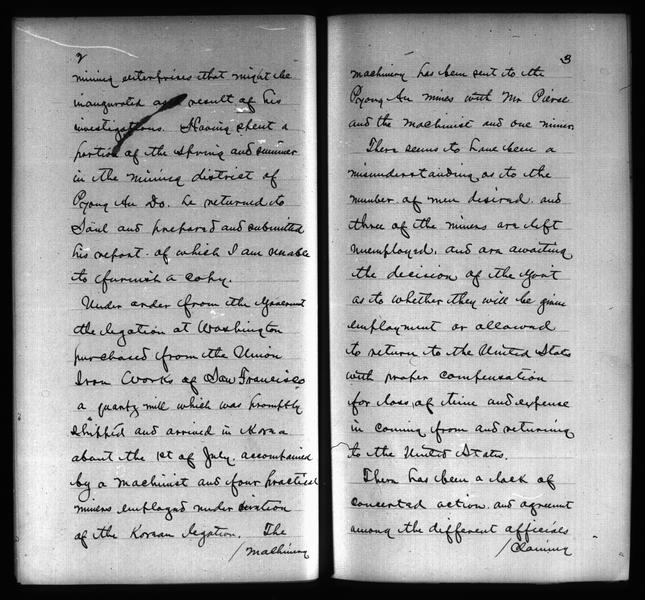 2
mining enterprises that might be
inaugurated as a result of his
investigations. Having spent a
portion of the spring and summer
in the mining district of
Pyong An Do. he returned to
Saül and prepared and submitted
his report - of which I am unable
to furnish a copy.
Under order from the Government
the legation at Washington
purchased from the Union
Iron Works of San Francisco
a quartz mill which was promptly
shipped and arrived in Korea
about the 1st of July, accompanied
by a machinist and four practical
miners employed under direction
of the Korean legation. The
/machinery
3
machinery has been sent to the
Pyong An mines with Mr Pierce
and the machinist and one miner.
There seems to have been a
misunderstanding as to the
number of men desired and
three of the miners are left
unemployed, and are awaiting
the decision of the Govt
as to whether they will be given
employment or allowed
to return to the United States
with proper compensation
for loss of time and expense
in coming from and returning
to the United States.
There has been a lack of
concerted action and agreement
among the different officials
/claiming